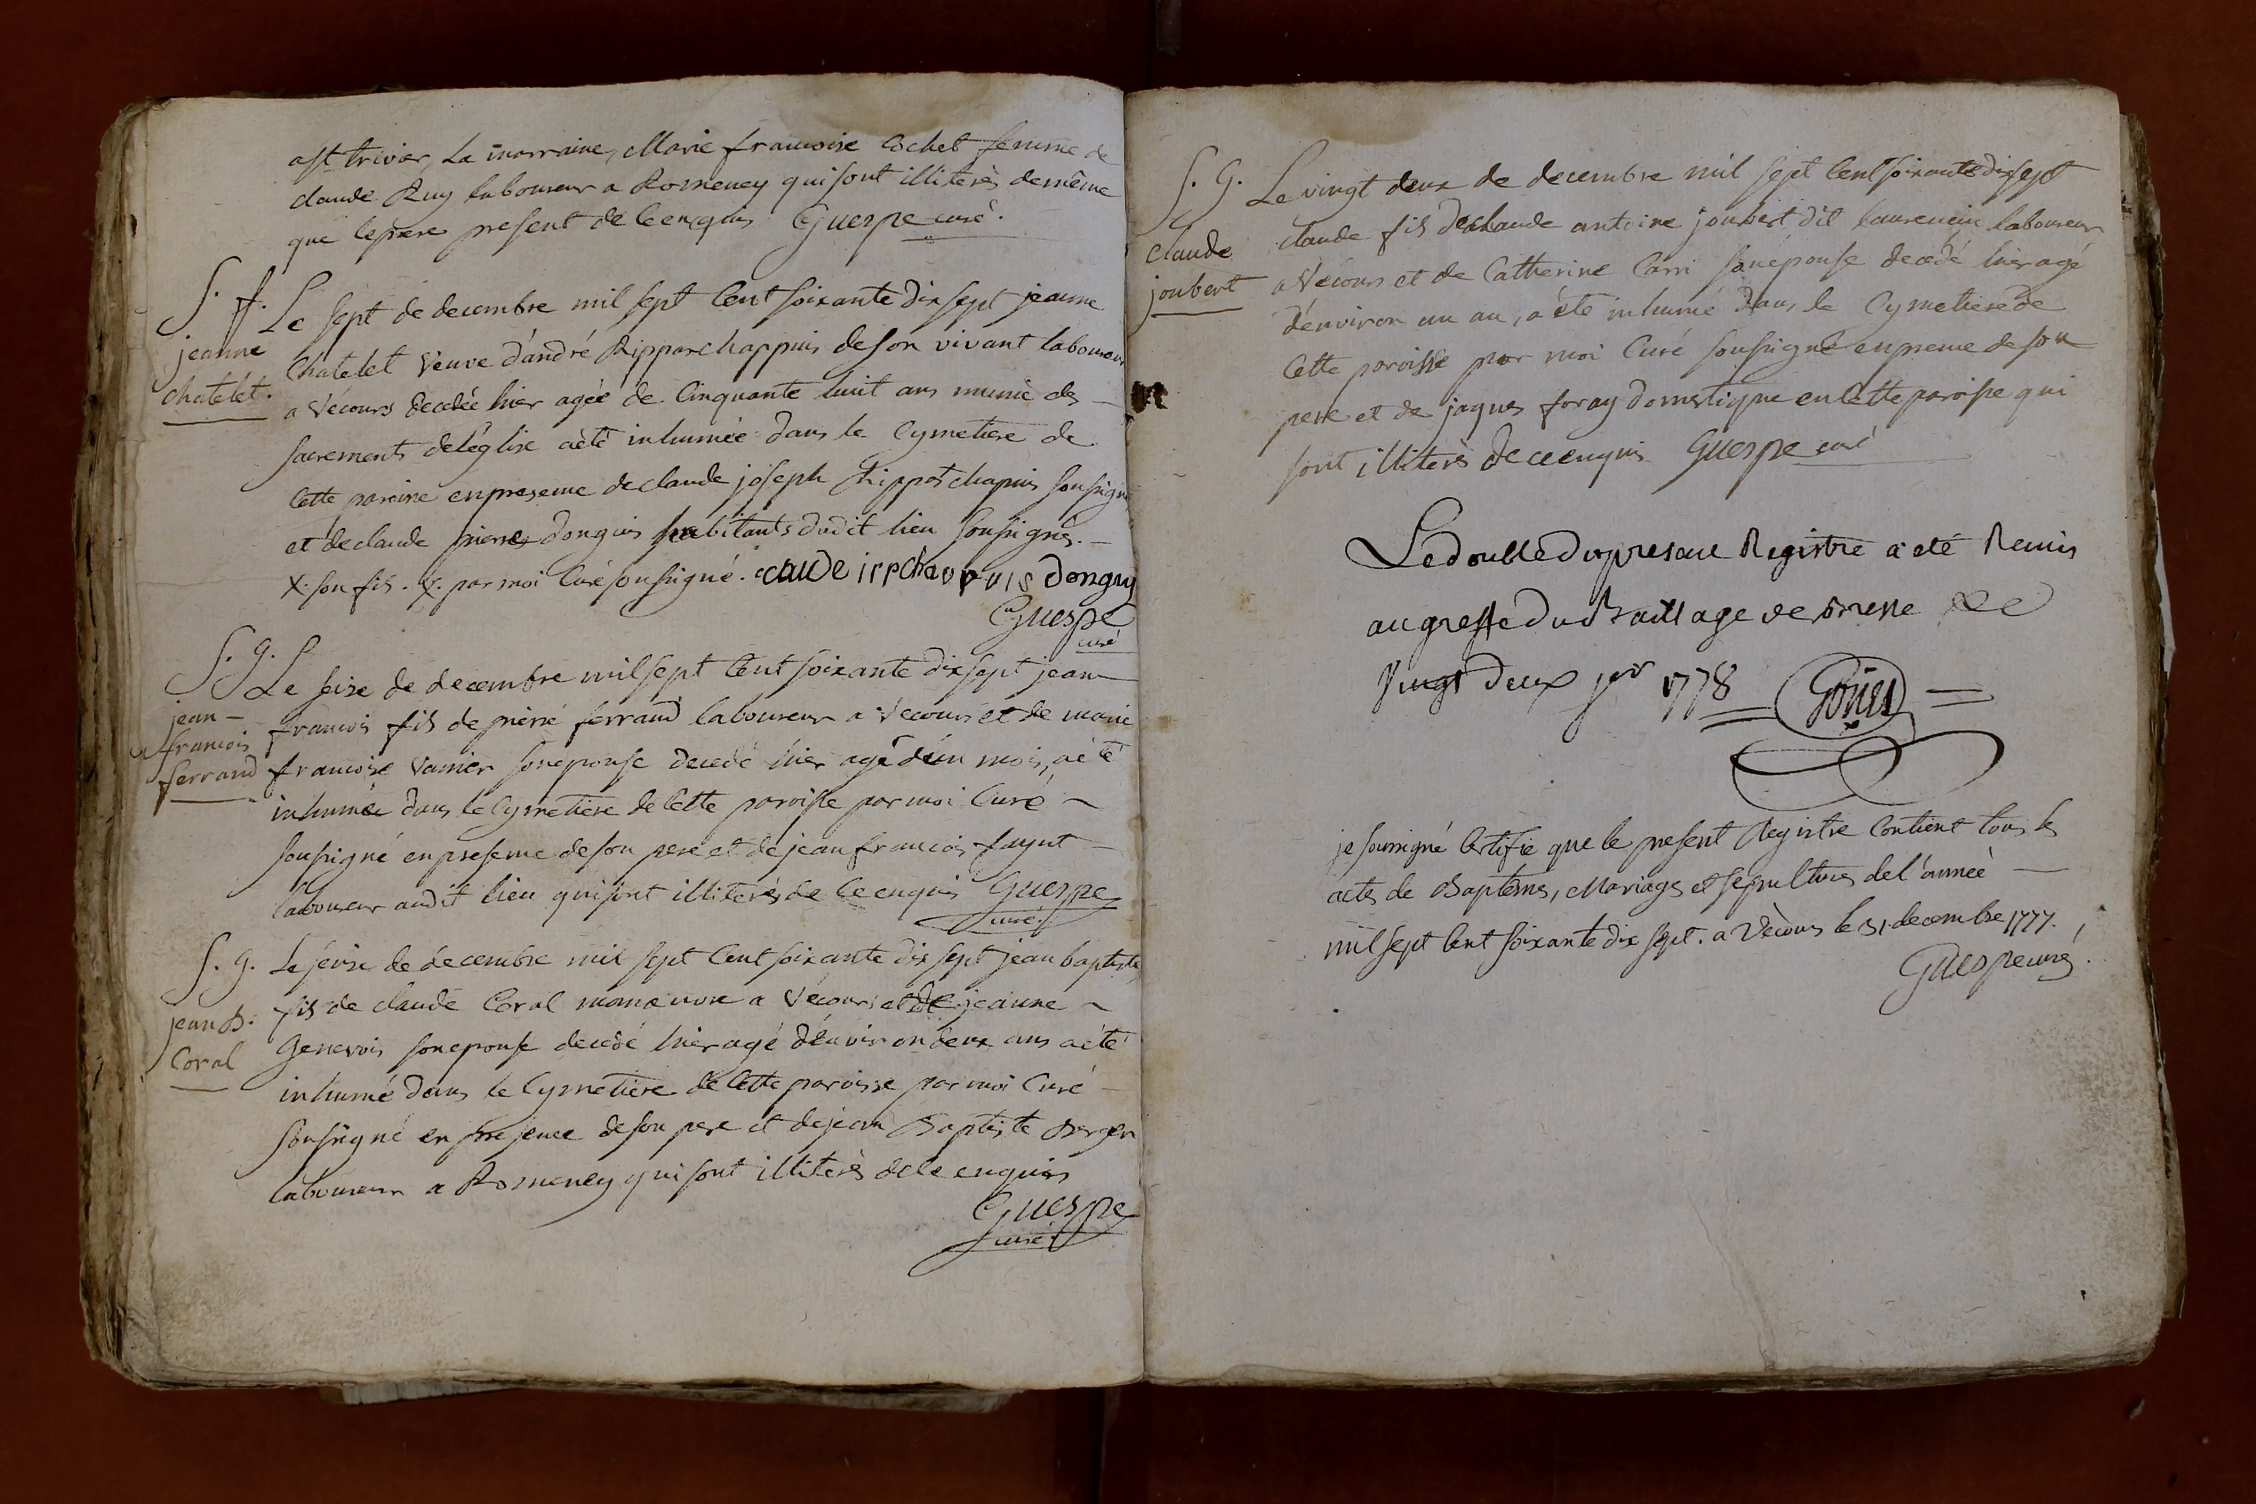 ast trivier la marraine, Marie francoise Cochet femme de
claude Ruy laboureur a Romeney qui sont illiterès de même
que le pere present de ce enquis Guespe curé.
S. f.
jeanne
chatelet.
Le sept de decembre mil sept Cent soixante dix sept jeanne
Chatelet veuve d'andré Ripparchappuis de son vivant laboureur
a Vécours decedée hier agée de Cinquante huit ans munie des
sacrements de l'église a été inhumée dans le Cymetiere de
Cette paroisse en presence de claude joseph Rippatchapuis soussigné
et de claude pierre donguis habitants dudit lieu soussignés.
X. son fis. X. par moi Curé soussigné. caude irpchappuis Donguy
Guespe
curé
S. G.
jean
francois
ferrand
Le seize de decembre mil sept Cent soixante dix sept jean
francois fils de pierre ferrand laboureur a Vecours et de marie
francoise Vanier son epouse decedé hier agé d'un mois, a été
inhumée dans le Cymetiere de Cette paroisse par moi Curé
soussigné en presence de son pere et de jean francois fuynt
laboureur audit lieu qui sont illiterès de ce enquis Guespe
curé.
S. G.
jean B.
Coral
Le seise de décembre mil sept Cent soixante dix sept jean baptiste
fils de claude Coral manœuvre a Vécours et de jeanne
Genevois son epouse decedé hier agé d'environ deux ans a été
inhumé dans le Cymetiere de Cette paroisse par moi Curé
soussigné en presence de son pere et de jean Baptiste Berger
laboureur a Romeney qui sont illiterès de ce enquis
Guespe
curé.
S. G.
claude
joubert
Le vingt deux de decembre mil sept Cent soixante dix sept
claude fils de claude antoine joubert dit laurencin laboureur
a Vécours et de Catherine Carri son épouse decedé hier agé
d'environ un an, a été inhumé dans le Cymetiere de
Cette paroisse par moi Curé soussigné en presence de son
pere et de jaques foray domestique en Cette paroisse qui
sont illiterès de ce enquis Guespe curé
Le double du present Registre a eté Remis
au greffe du Bailliage de Bresse Le
vingt deux jer 1778
je soussigné Certifie que le present Registre Contient tous les
actes de Baptêmes, Mariages et sépultures de l'année
mil sept Cent soixante dix sept. a Vècours le 31. decembre 1777.
Guespe curé.